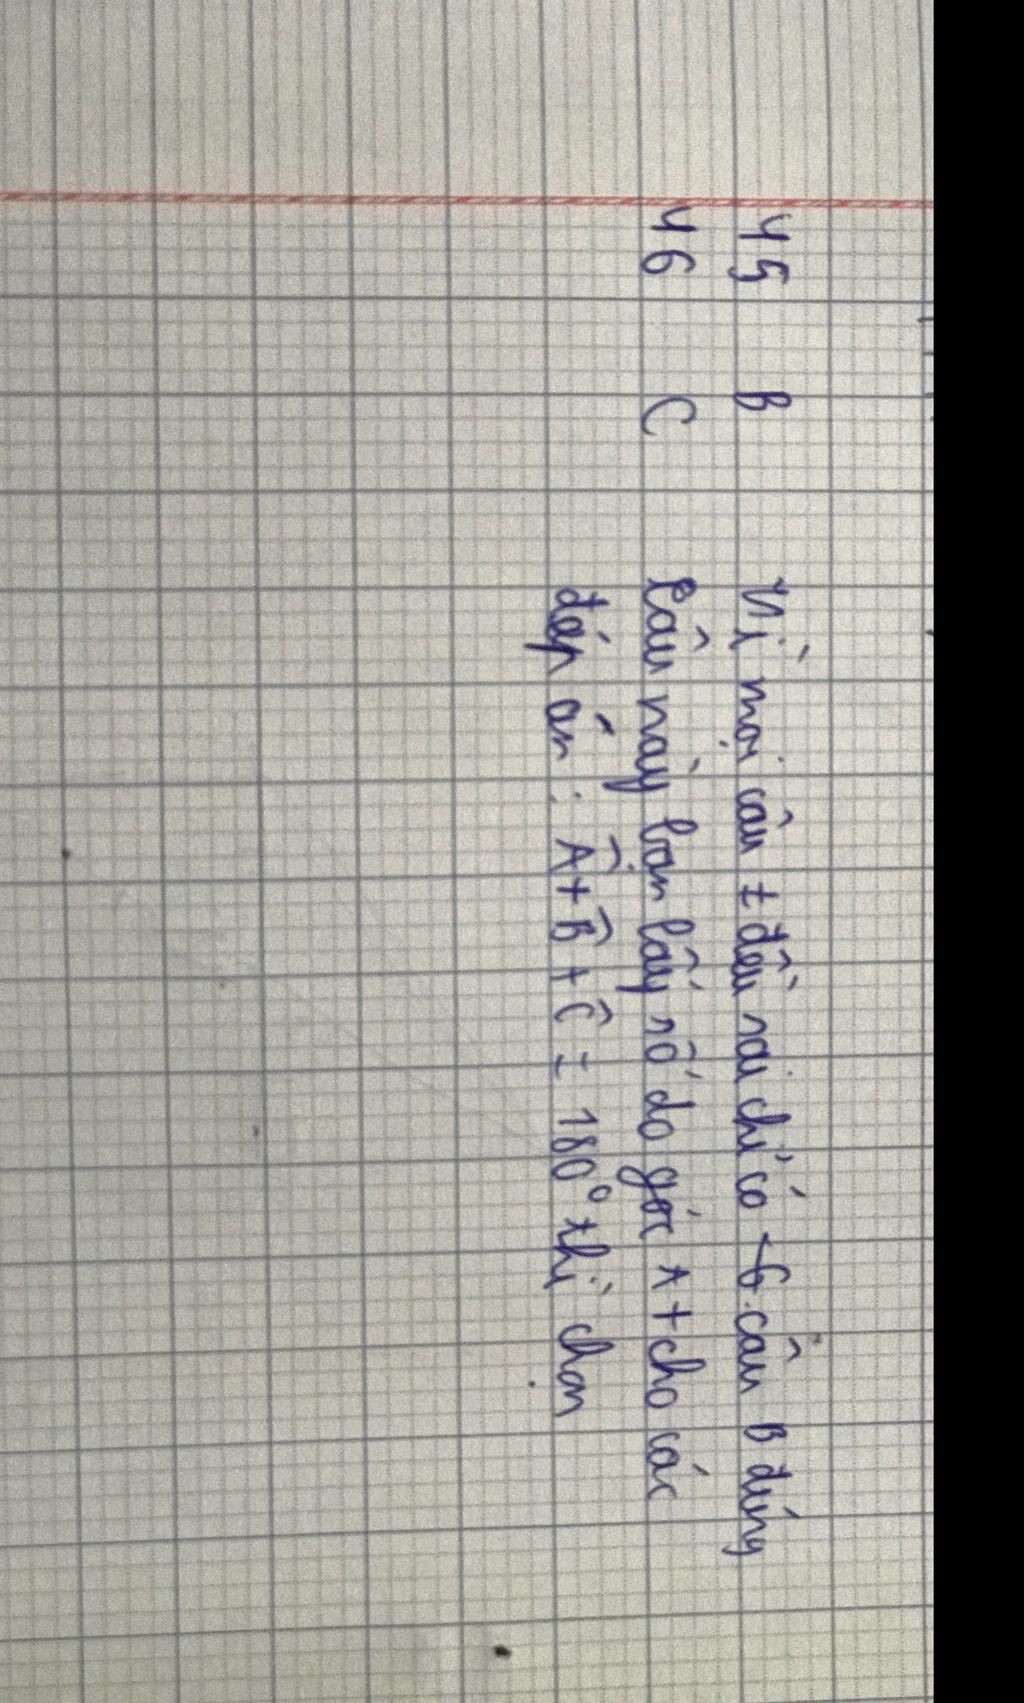 45 B Vì mọi câu ± đều sai chỉ có -6 câu B đúng
46 C Câu này bạn lấy số đo góc A + cho các
đáp án : Â + B̂ + Ĉ = 180° thì chọn